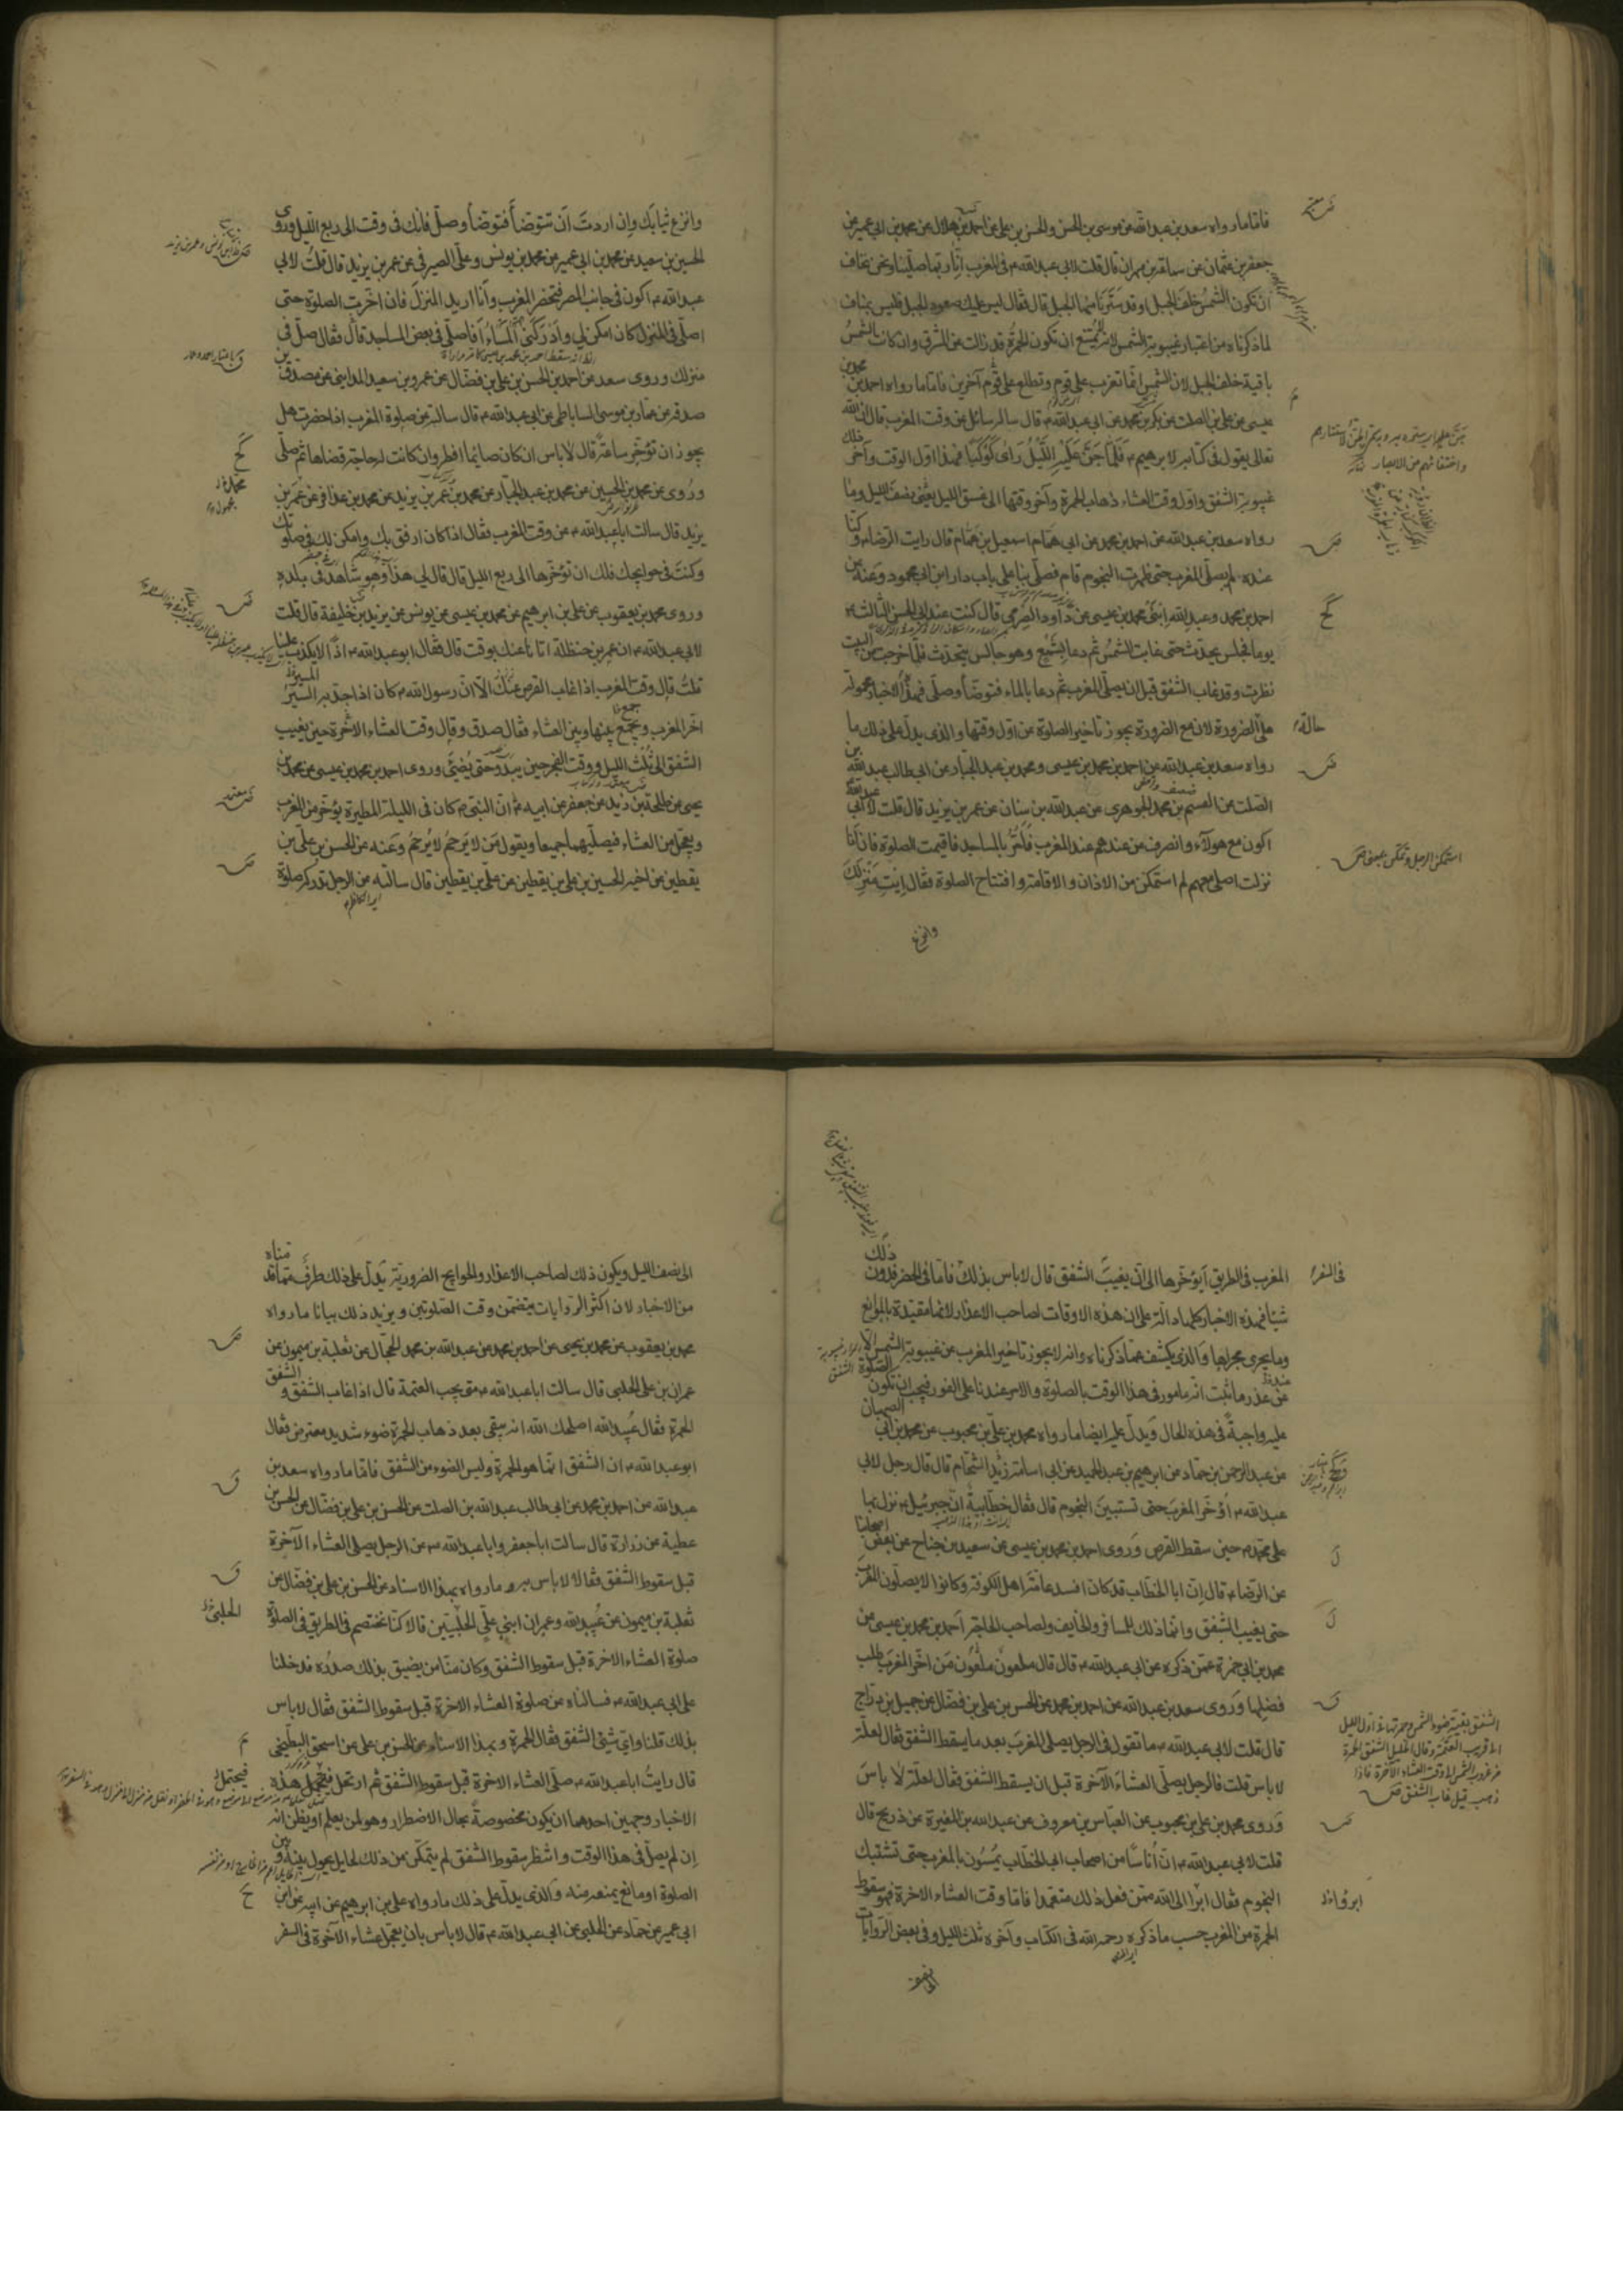 فاما ما رواه سعد بن عبد الله عن موسى بن الحسن والحسن بن علي عن احمد بن هلال عن محمد بن ابي عمير عن
جعفر بن عثمان عن سماعة بن مهران قال قلت لابي عبد الله ع في المغرب انا ربما صلينا ونحن نخاف
ان تكون الشمس خلف الجبل او قد سترنا منها الجبل قال فقال ليس عليك صعود الجبل فليس بمناف
لما ذكرناه من اعتبار غيبوبة الشمس لانه لا يمتنع ان تكون الحمرة قد زالت عن المشرق وان كانت الشمس
باقية خلف الجبل لان الشمس انما تغرب على قوم وتطلع على قوم آخرين فاما ما رواه احمد بن محمد بن
عيسى عن علي بن الصلت عن بكر بن محمد عن ابي عبد الله ع قال ساله سائل عن وقت المغرب قال ان الله
تعالى يقول في كتابه لابرهيم ع فَلَمَّا جَنَّ عَلَيْهِ اللَّيْلُ رَاى كَوْكَبًا فهذا اول الوقت وآخر ذلك
غيبوبة الشفق واول وقت العشاء ذهاب الحمرة وآخر وقتها الى غسق الليل يعني نصف الليل وما
رواه سعد بن عبد الله عن احمد بن محمد عن ابي همام اسمعيل بن همام قال رايت الرضا ع وكنا
عنده لم يصلي المغرب حتى ظهرت النجوم قام فصلى بنا على باب دار ابن ابي محمود وعنه عن
احمد بن محمد وعبد الله ابني محمد بن عيسى عن داود الصرمي قال كنت عند ابي الحسن الثالث ع
يوما فجلس يحدث حتى غابت الشمس ثم دعا بشمع وهو جالس يتحدث فلما خرجت من البيت
نظرت وقد غاب الشفق قبل ان يصلي المغرب ثم دعا بالماء فتوضأ وصلى فهذه الاخبار محمولة
على الضرورة لان مع الضرورة يجوز تاخير الصلوة عن اول وقتها والذي يدل على ذلك ما
رواه سعد بن عبد الله عن احمد بن محمد بن عيسى ومحمد بن عبد الجبار عن ابي طالب عبد الله بن
الصلت عن القسم بن محمد الجوهري عن عبد الله بن سنان عن عمر بن يزيد قال قلت لابي عبد الله
اكون مع هولآء وانصرف من عندهم عند المغرب فامر بالمساجد فاقيمت الصلوة فان انا
نزلت اصلي معهم لم استمكن من الاذان والاقامة وافتتاح الصلوة فقال ايت منزلك
وانزع
حالة
استمكن الرجل وتمكن بمعنى ص
وانزع ثيابك وان اردت ان تتوضأ فتوضأ وصل فانك في وقت الى ربع الليل وروى
الحسين بن سعيد عن محمد بن ابي عمير عن محمد بن يونس وعلي الصيرفي عن عمر بن يزيد قال قلت لابي
عبد الله ع اكون في جانب المصر فتحضر المغرب وانا اريد المنزل فان اخرت الصلوة حتى
اصلي في المنزل كان امكن لي وادركني المساء أفاصلي في بعض المساجد قال فقال صل في
منزلك وروى سعد عن احمد بن الحسن بن علي بن فضال عن عمرو بن سعيد المدايني عن مصدق بن
صدقة عن عمار بن موسى الساباطي عن ابي عبد الله ع قال سالته عن صلوة المغرب اذا حضرت هل
يجوز ان تؤخر ساعة قال لا باس ان كان صائما افطر وان كانت له حاجة قضاها ثم صلى
وروى عن محمد بن الحسين عن محمد بن عبد الجبار عن محمد بن عمر بن يزيد عن محمد بن عذافر عن عمر بن
يزيد قال سالت ابا عبد الله ع عن وقت المغرب فقال اذا كان ارفق بك وامكن لك في صلوتك
وكنت في حوايجك فلك ان تؤخرها الى ربع الليل قال قال لي هذا وهو شاهد في بلده
وروى محمد بن يعقوب عن علي بن ابرهيم عن محمد بن عيسى عن يونس عن يزيد بن خليفة قال قلت
لابي عبد الله ع ان عمر بن حنظلة اتانا عنك بوقت قال فقال ابو عبد الله ع اذا لا يكذب علينا
قلت قال وقت المغرب اذا غاب القرص عنك الا ان رسول الله ص كان اذا جد به السير
اخر المغرب ويجمع بينها وبين العشاء فقال صدق وقال وقت العشاء الاخرة حين يغيب
الشفق الى ثلث الليل ووقت الفجر حين يبدو حتى يضيئ وروى احمد بن محمد بن عيسى عن محمد بن
يحيى عن طلحة بن زيد عن جعفر عن ابيه ع ان النبي ص كان في الليلة المطيرة يؤخر من المغرب
ويعجل من العشاء فيصليهما جميعا ويقول من لا يرحم لا يرحم وعنه عن الحسن بن علي بن
يقطين عن اخيه الحسين بن علي بن يقطين عن علي بن يقطين قال سالته عن الرجل تدركه صلوة
في السفر
المغرب في الطريق ايؤخرها الى ان يغيب الشفق قال لا باس بذلك فاما في الحضر فدون ذلك
شيئا فهذه الاخبار كلها دالة على ان هذه الاوقات لصاحب الاعذار لانها مقيدة بالموانع
وما يجرى مجراها والذي يكشف عما ذكرناه وانه لا يجوز تاخير المغرب عن غيبوبة الشمس الا
عن عذر ما ثبت انه مامور في هذا الوقت بالصلوة والامر عندنا على الفور فيجب ان تكون الصلوة
عليه واجبة في هذه الحال ويدل عليه ايضا ما رواه محمد بن علي بن محبوب عن محمد بن ابي الصهبان
عن عبد الرحمن بن حماد عن ابرهيم بن عبد الحميد عن ابي اسامة زيد الشحام قال قال رجل لابي
عبد الله ع اؤخر المغرب حتى تستبين النجوم قال فقال خطابية ان جبرئيل ع نزل بها
على محمد ص حين سقط القرص وروى احمد بن محمد بن عيسى عن سعيد بن جناح عن بعض اصحابنا
عن الرضا ع قال ان ابا الخطاب قد كان افسد عامة اهل الكوفة وكانوا لا يصلون المغرب
حتى يغيب الشفق وانما ذلك للمسافر والخايف ولصاحب الحاجة احمد بن محمد بن عيسى عن
محمد بن ابي حمزة عمن ذكره عن ابي عبد الله ع قال قال ملعون ملعون من اخر المغرب طلب
فضلها وروى سعد بن عبد الله عن احمد بن محمد عن الحسن بن علي بن فضال عن جميل بن دراج
قال قلت لابي عبد الله ع ما تقول في الرجل يصلي المغرب بعد ما يسقط الشفق فقال لعلة
لا باس قلت فالرجل يصلي العشاء الآخرة قبل ان يسقط الشفق فقال لعلة لا باس
وروى محمد بن علي بن محبوب عن العباس بن معروف عن عبد الله بن المغيرة عن ذريح قال
قلت لابي عبد الله ع ان أناسا من اصحاب ابي الخطاب يمسون بالمغرب حتى تشتبك
النجوم فقال ابرا الى الله ممن فعل ذلك متعمدا فاما وقت العشاء الاخرة فهو سقوط
الحمرة من المغرب حسب ما ذكره رحمه الله في الكتاب وآخره ثلث الليل وفي بعض الروايات
الشفق بقية ضوء الشمس وحمرتها في اول الليل
الى قريب العتمة وقال الخليل الشفق الحمرة
من غروب الشمس الى وقت العشاء الآخرة فاذا
ذهب قيل غاب الشفق ص
الى نصف الليل ويكون ذلك لصاحب الاعذار والحوايج الضرورية يدل على ذلك طرف مما قدمناه
من الاخبار لان اكثر الروايات يتضمن وقت الصلوتين ويزيد ذلك بيانا ما رواه
محمد بن يعقوب عن محمد بن يحيى عن احمد بن محمد عن عبد الله بن محمد الحجال عن ثعلبة بن ميمون عن
عمران بن علي الحلبي قال سالت ابا عبد الله ع متى يجب العتمة قال اذا غاب الشفق والشفق
الحمرة فقال عبيد الله اصلحك الله انه يبقى بعد ذهاب الحمرة ضوء شديد معترض فقال
ابو عبد الله ع ان الشفق انما هو الحمرة وليس الضوء من الشفق فاما ما رواه سعد بن
عبد الله عن احمد بن محمد عن ابي طالب عبد الله بن الصلت عن الحسن بن علي بن فضال عن الحسن بن
عطية عن زرارة قال سالت ابا جعفر وابا عبد الله ع عن الرجل يصلي العشاء الآخرة
قبل سقوط الشفق فقالا لا باس به وما رواه بهذا الاسناد عن الحسن بن علي بن فضال عن
ثعلبة بن ميمون عن عبيد الله وعمران ابني علي الحلبيين قالا كنا نختصم في الطريق في الصلوة
صلوة العشاء الاخرة قبل سقوط الشفق وكان منا من يضيق بذلك صدره فدخلنا
على ابي عبد الله ع فسالناه عن صلوة العشاء الاخرة قبل سقوط الشفق فقال لا باس
بذلك قلنا واي شيئ الشفق فقال الحمرة وبهذا الاسناد عن الحسن بن علي عن اسحق البطيخي
قال رايت ابا عبد الله ع صلى العشاء الاخرة قبل سقوط الشفق ثم ارتحل فيحمل هذه
الاخبار وجهين احدهما ان يكون مخصوصة بحال الاضطرار وهو لمن يعلم او يظن انه
ان لم يصل في هذا الوقت وانتظر سقوط الشفق لم يتمكن من ذلك لحايل يحول بينه وبين
الصلوة او مانع يمنعه منه والذي يدل على ذلك ما رواه علي بن ابرهيم عن ابيه عن ابن
ابي عمير عن حماد عن الحلبي عن ابي عبد الله ع قال لا باس بان يعجل عشاء الآخرة في السفر